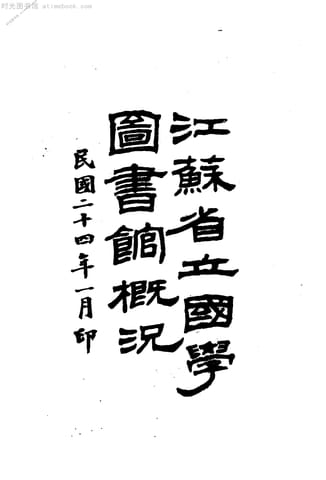 时光图书馆 atimebook.com
江蘇省立國學
圖書館概況
民國二十四年一月印